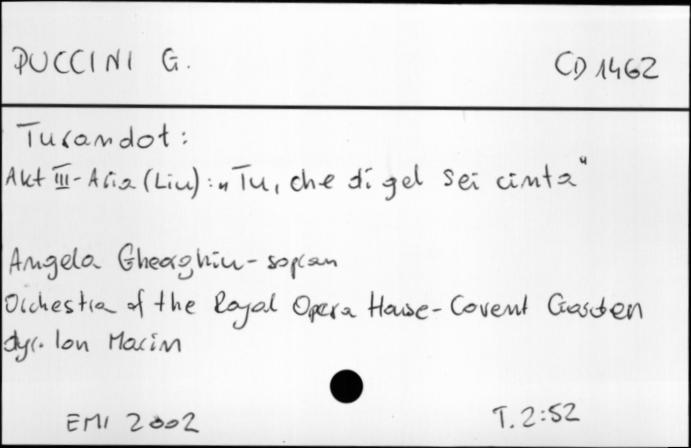 PUCCINI G.
CD 1462
Turandot:
Akt III - Aria (Liu): „Tu, che di gel sei cinta"
Angela Gheorghiu - sopran
Orchestra of the Royal Opera House - Covent Garden
dyr. Ion Marin
EMI 2002
T. 2:52